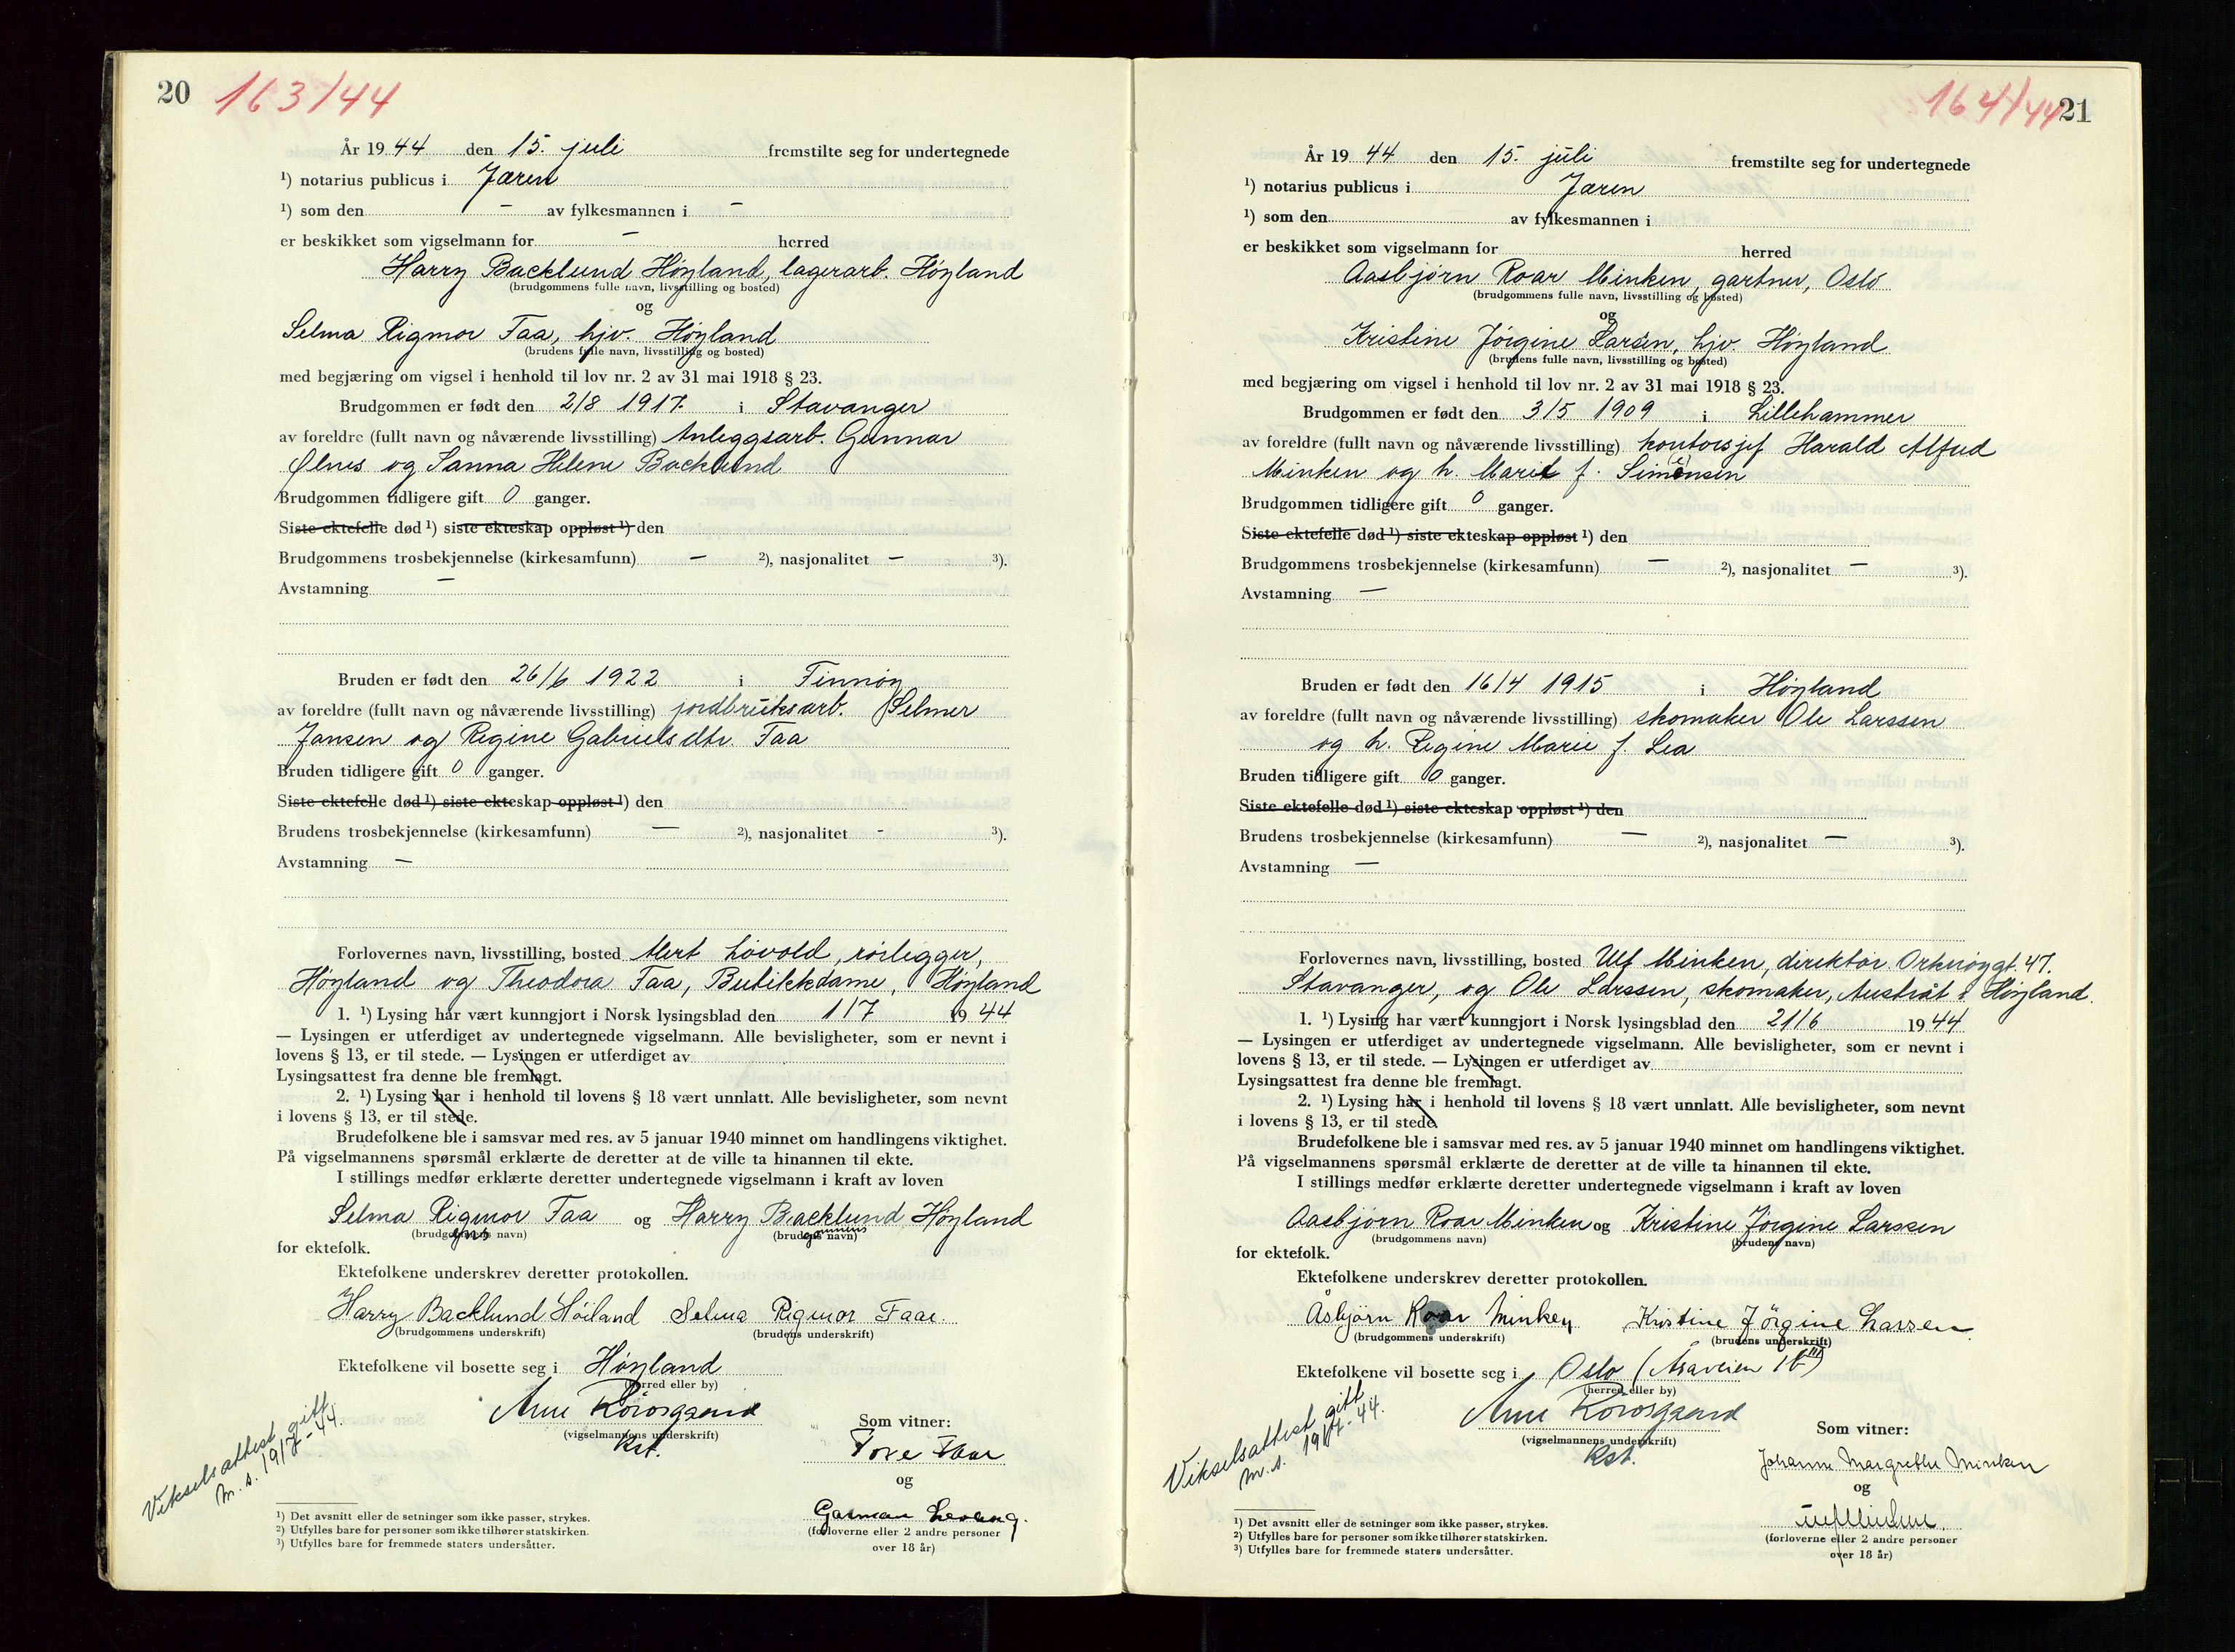 20 163/44
År 19 44 den 15. juli fremstilte seg for undertegnede
¹) notarius publicus i Jæren
¹) som den — av fylkesmannen i —
er beskikket som vigselmann for — herred
Harry Backlund Höyland, lagerarb. Höyland
(brudgommens fulle navn, livsstilling og bosted)
og
Selma Rigmor Taa, hjv. Höyland
(brudens fulle navn, livsstilling og bosted)
med begjæring om vigsel i henhold til lov nr. 2 av 31 mai 1918 § 23.
Brudgommen er født den 2/8 1917. i Stavanger
av foreldre (fullt navn og nåværende livsstilling) Anleggsarb. Gunnar
Ølnes og Sanna Helene Backlund
Brudgommen tidligere gift 0 ganger.
Siste ektefelle død ¹) siste ekteskap oppløst ¹) den
Brudgommens trosbekjennelse (kirkesamfunn) — ²), nasjonalitet — ³).
Avstamning —
Bruden er født den 26/6 1922 i Finnöy
av foreldre (fullt navn og nåværende livsstilling) jordbruksarb. Selmer
Jansen og Regine Gabrielsdtr. Taa
Bruden tidligere gift 0 ganger.
Siste ektefelle død ¹) siste ekteskap oppløst ¹) den
Brudens trosbekjennelse (kirkesamfunn) — ²), nasjonalitet - ³).
Avstamning —
Forlovernes navn, livsstilling, bosted Alert Lövold, rörlegger,
Höyland og Theodora Taa, Butikkdame, Höyland
1. ¹) Lysing har vært kunngjort i Norsk lysingsblad den 1/7 19 44
— Lysingen er utferdiget av undertegnede vigselmann. Alle bevisligheter, som er nevnt i
lovens § 13, er til stede. — Lysingen er utferdiget av
Lysingsattest fra denne ble fremlagt.
2. ¹) Lysing har i henhold til lovens § 18 vært unnlatt. Alle bevisligheter, som nevnt
i lovens § 13, er til stede.
Brudefolkene ble i samsvar med res. av 5 januar 1940 minnet om handlingens viktighet.
På vigselmannens spørsmål erklærte de deretter at de ville ta hinannen til ekte.
I stillings medfør erklærte deretter undertegnede vigselmann i kraft av loven
Selma Rigmor Taa og Harry Backlund Höyland
(brudgommens navn) (brudens navn)
for ektefolk.
Ektefolkene underskrev deretter protokollen.
Harry Backlund Höiland Selma Rigmor Taae.
(brudgommens underskrift) (brudens underskrift)
Ektefolkene vil bosette seg i Höyland
(herred eller by)
Arne Korosgaard
(vigselmannens underskrift)
Kst.
Vikselsattest gitt
m. s. 19/7-44.
Som vitner:
og
(forloverne eller 2 andre personer
over 18 år)
¹) Det avsnitt eller de setninger som ikke passer, strykes.
²) Utfylles bare for personer som ikke tilhører statskirken.
³) Utfylles bare for fremmede staters undersåtter.
164/44 21
År 19 44 den 15. juli fremstilte seg for undertegnede
¹) notarius publicus i Jæren
¹) som den av fylkesmannen i
er beskikket som vigselmann for herred
Aasbjörn Roar Minken, gartner, Oslo
(brudgommens fulle navn, livsstilling og bosted)
og
Kristine Jörgine Larsen, hjv. Höyland
(brudens fulle navn, livsstilling og bosted)
med begjæring om vigsel i henhold til lov nr. 2 av 31 mai 1918 § 23.
Brudgommen er født den 3/5 1909 i Lillehammer
av foreldre (fullt navn og nåværende livsstilling) kontorsjef Harald Alfred
Minken og h. Marie f. Simensen
Brudgommen tidligere gift 0 ganger.
Siste ektefelle død ¹) siste ekteskap oppløst ¹) den
Brudgommens trosbekjennelse (kirkesamfunn) — ²), nasjonalitet — ³).
Avstamning —
Bruden er født den 16/4 1915 i Höyland
av foreldre (fullt navn og nåværende livsstilling) skomaker Ole Larssen
og h. Regine Marie f. Lea
Bruden tidligere gift 0 ganger.
Siste ektefelle død ¹) siste ekteskap oppløst ¹) den
Brudens trosbekjennelse (kirkesamfunn) — ²), nasjonalitet — ³).
Avstamning —
Forlovernes navn, livsstilling, bosted Ulf Minken, direktör Orknöygt. 47.
Stavanger, og Ole Larssen, skomaker, Austråt i Höyland.
1. ¹) Lysing har vært kunngjort i Norsk lysingsblad den 21/6 19 44
— Lysingen er utferdiget av undertegnede vigselmann. Alle bevisligheter, som er nevnt i
lovens § 13, er til stede. — Lysingen er utferdiget av
Lysingsattest fra denne ble fremlagt.
2. ¹) Lysing har i henhold til lovens § 18 vært unnlatt. Alle bevisligheter, som nevnt
i lovens § 13, er til stede
Brudefolkene ble i samsvar med res. av 5 januar 1940 minnet om handlingens viktighet.
På vigselmannens spørsmål erklærte de deretter at de ville ta hinannen til ekte.
I stillings medfør erklærte deretter undertegnede vigselmann i kraft av loven
Aasbjörn Roar Minken og Kristine Jörgine Larssen
(brudgommens navn) (brudens navn)
for ektefolk.
Ektefolkene underskrev deretter protokollen.
Åsbjörn Roar Minken Kristine Jörgine Larssen
(brudgommens underskrift) (brudens underskrift)
Ektefolkene vil bosette seg i Oslo (Åsaveien
(herred eller by)
Arne Korosgaard
(vigselmannens underskrift)
Kst.
Vikselsattest gitt
m. s. 19/7-44.
Som vitner:
Johanne Margrethe Minken
og
Ulf Minken.
(forloverne eller 2 andre personer
over 18 år)
¹) Det avsnitt eller de setninger som ikke passer, strykes.
²) Utfylles bare for personer som ikke tilhører statskirken.
³) Utfylles bare for fremmede staters undersåtter.